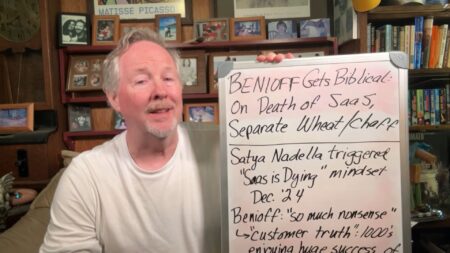 MATISSE PICASSO
BENIOFF Gets Biblical
On Death of SaaS,
Separate Wheat/Chaff
Satya Nadella triggered
"SaaS is Dying" mindset
Dec. '24
Benioff: "so much nonsense"
↳ "customer truth": 1000's
enjoying huge success of